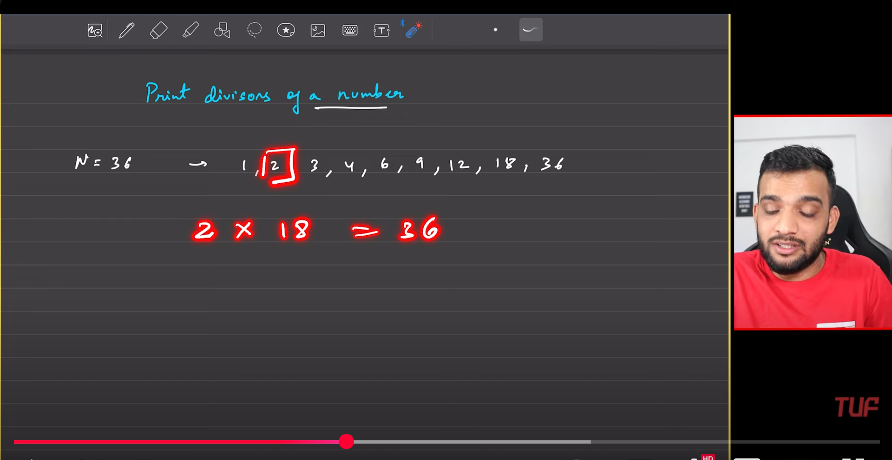 Print divisors of a number
N = 36 → 1, 2 3, 4, 6, 9, 12, 18, 36
2 × 18 = 36
TUF
HD